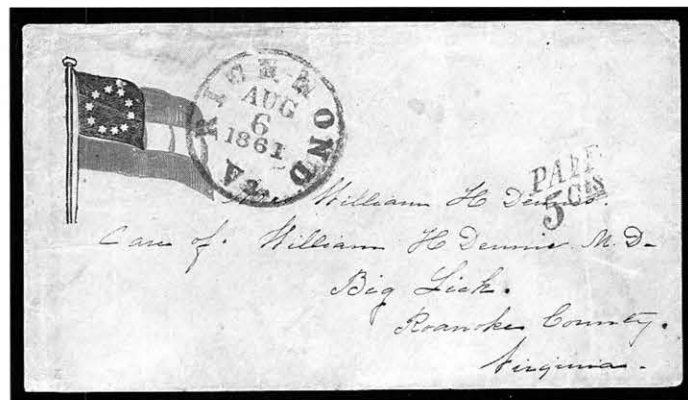 RICHMOND VA
AUG
6
1861
PAID
5 Cts
Mrs William H Dennis.
Care of. William H Dennis M.D.
Big Lick.
Roanoke County.
Virginia.